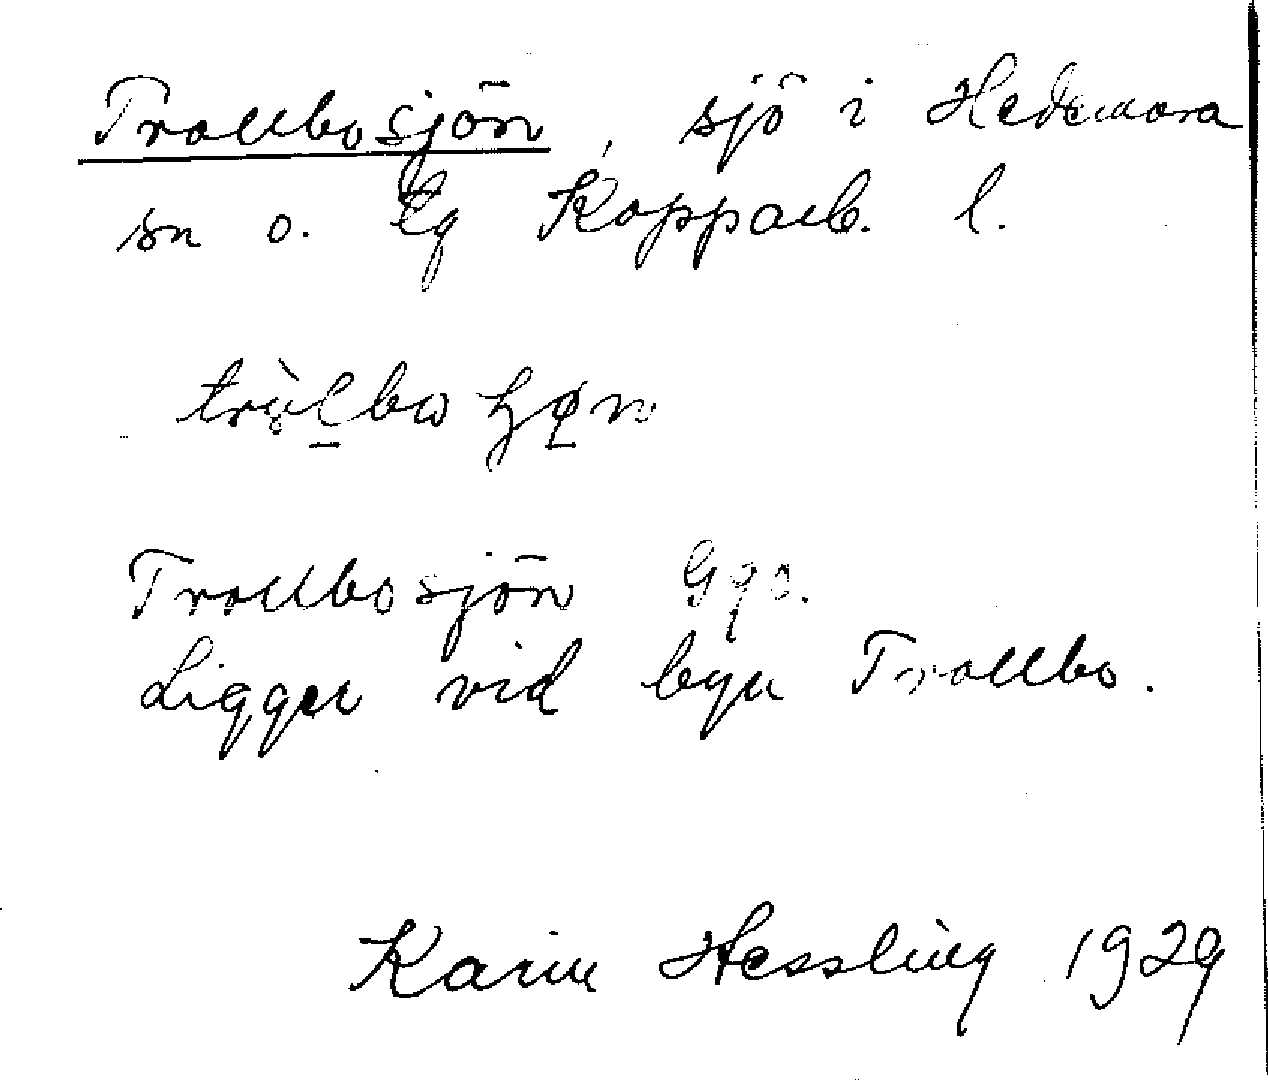 Trollbosjön, sjö i Hedemora
sn o. tg Kopparb. l.
Trollbosjön Gqo.
Ligger vid byn Trollbo.
Karin Hessling 1929